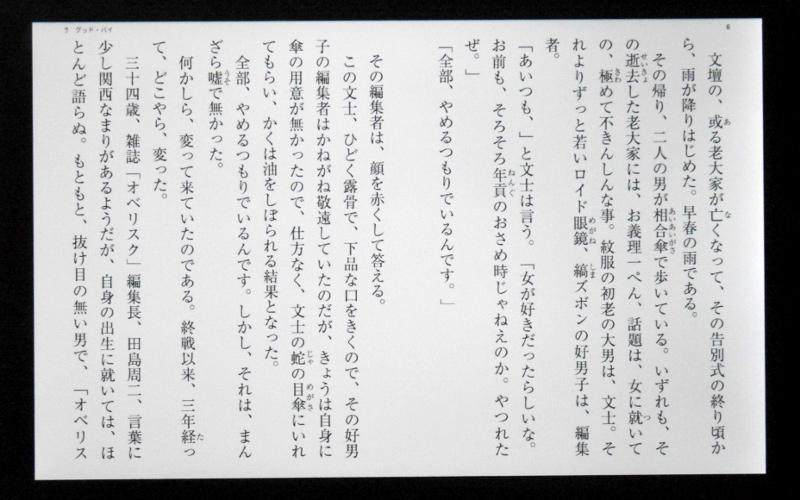 7 グッド・バイ
6
文壇の、或る老大家が亡くなって、その告別式の終り頃か
ら、雨が降りはじめた。早春の雨である。
その帰り、二人の男が相合傘で歩いている。いずれも、そ
の逝去した老大家には、お義理一ぺん、話題は、女に就いて
の、極めて不きんしんな事。紋服の初老の大男は、文士。そ
れよりずっと若いロイド眼鏡、縞ズボンの好男子は、編集
者。
「あいつも、」と文士は言う。「女が好きだったらしいな。
お前も、そろそろ年貢のおさめ時じゃねえのか。やつれた
ぜ。」
「全部、やめるつもりでいるんです。」
その編集者は、顔を赤くして答える。
この文士、ひどく露骨で、下品な口をきくので、その好男
子の編集者はかねがね敬遠していたのだが、きょうは自身に
傘の用意が無かったので、仕方なく、文士の蛇の目傘にいれ
てもらい、かくは油をしぼられる結果となった。
全部、やめるつもりでいるんです。しかし、それは、まん
ざら嘘で無かった。
何かしら、変って来ていたのである。終戦以来、三年経っ
て、どこやら、変った。
三十四歳、雑誌「オベリスク」編集長、田島周二、言葉に
少し関西なまりがあるようだが、自身の出生に就いては、ほ
とんど語らぬ。もともと、抜け目の無い男で、「オベリス